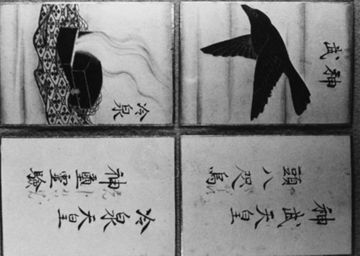 神武
冷泉
神武天皇
頭八咫烏
冷泉天皇
神璽靈驗